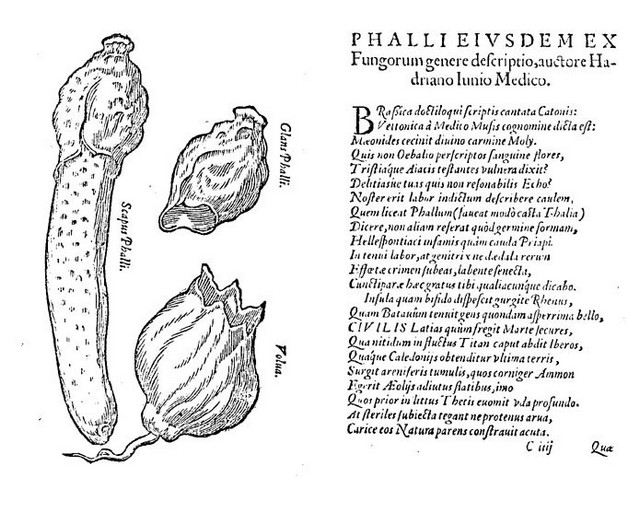 Glans Phalli.
Scapus Phalli.
Volua.
PHALLI EIVSDEM EX
Fungorum genere deſcriptio, auctore Ha-
driano Iunio Medico.
BRaſſica doctiloqui ſcriptis cantata Catonis:
Vettonica à Medico Muſis cognomine dicta eſt:
Mæonides cecinit diuino carmine Moly.
Quis non Oebalio perſcriptos ſanguine flores,
Triſtiaque Aiacis teſtantes vulnera dixit?
Delitiasue tuas quis non reſonabilis Echo?
Noſter erit labor indictum deſcribere caulem,
Quem liceat Phallum (faueat modò caſta Thalia)
Dicere, non aliam referat quòd germine formam,
Helleſpontiaci infamis quàm cauda Priapi.
In tenui labor, at genitrix ne dædala rerum
Effœtæ crimen ſubeas, labente ſenecta,
Cunctiparæ hæc gratus tibi qualiacunque dicabo.
Inſula quam bifido diſpeſcit gurgite Rhenus,
Quam Batauûm tenuit gens quondam aſperrima bello,
CIVILIS Latias quûm fregit Marte ſecures,
Qua nitidum in fluctus Titan caput abdit Iberos,
Quaque Caledonijs obtenditur vltima terris,
Surgit areniferis tumulis, quos corniger Ammon
Egerit Æolijs adiutus flatibus, imo
Quos prior in littus Thetis euomit vda profundo.
At ſteriles ſubiecta tegant ne protenus arua,
Carice eos Natura parens conſtrauit acuta.
C iiij Quæ